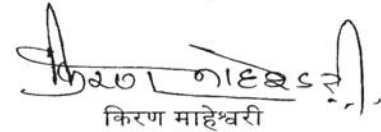 किरण माहेश्वरी
किरण माहेश्वरी